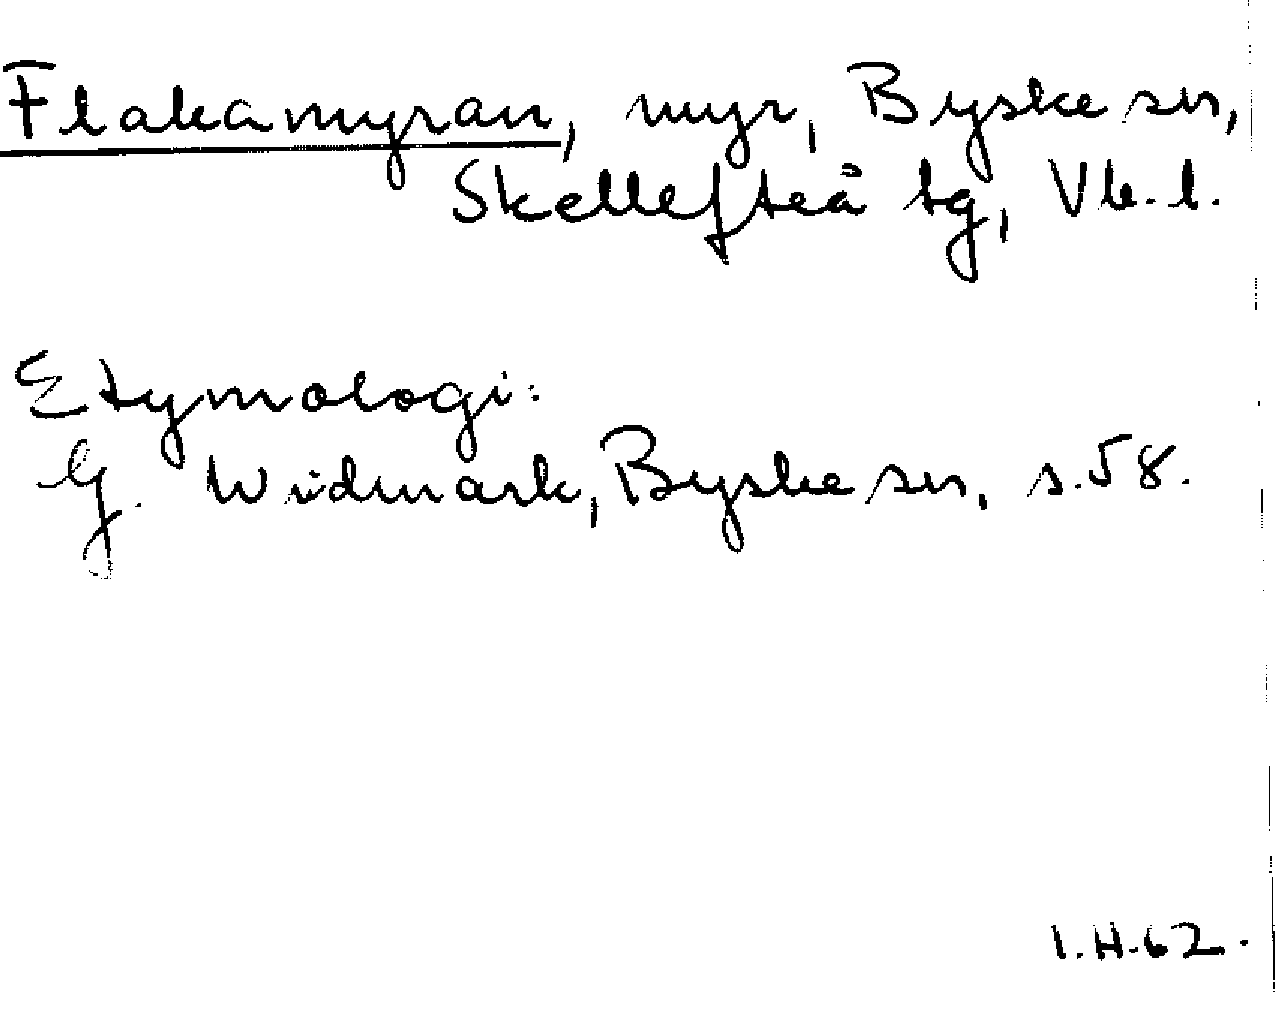 Flakamyran, myr, Byske sn,
Skellefteå tg, Vb. l.
Etymologi:
G. Widmark, Byske sn, s. 58.
I.H. 62.